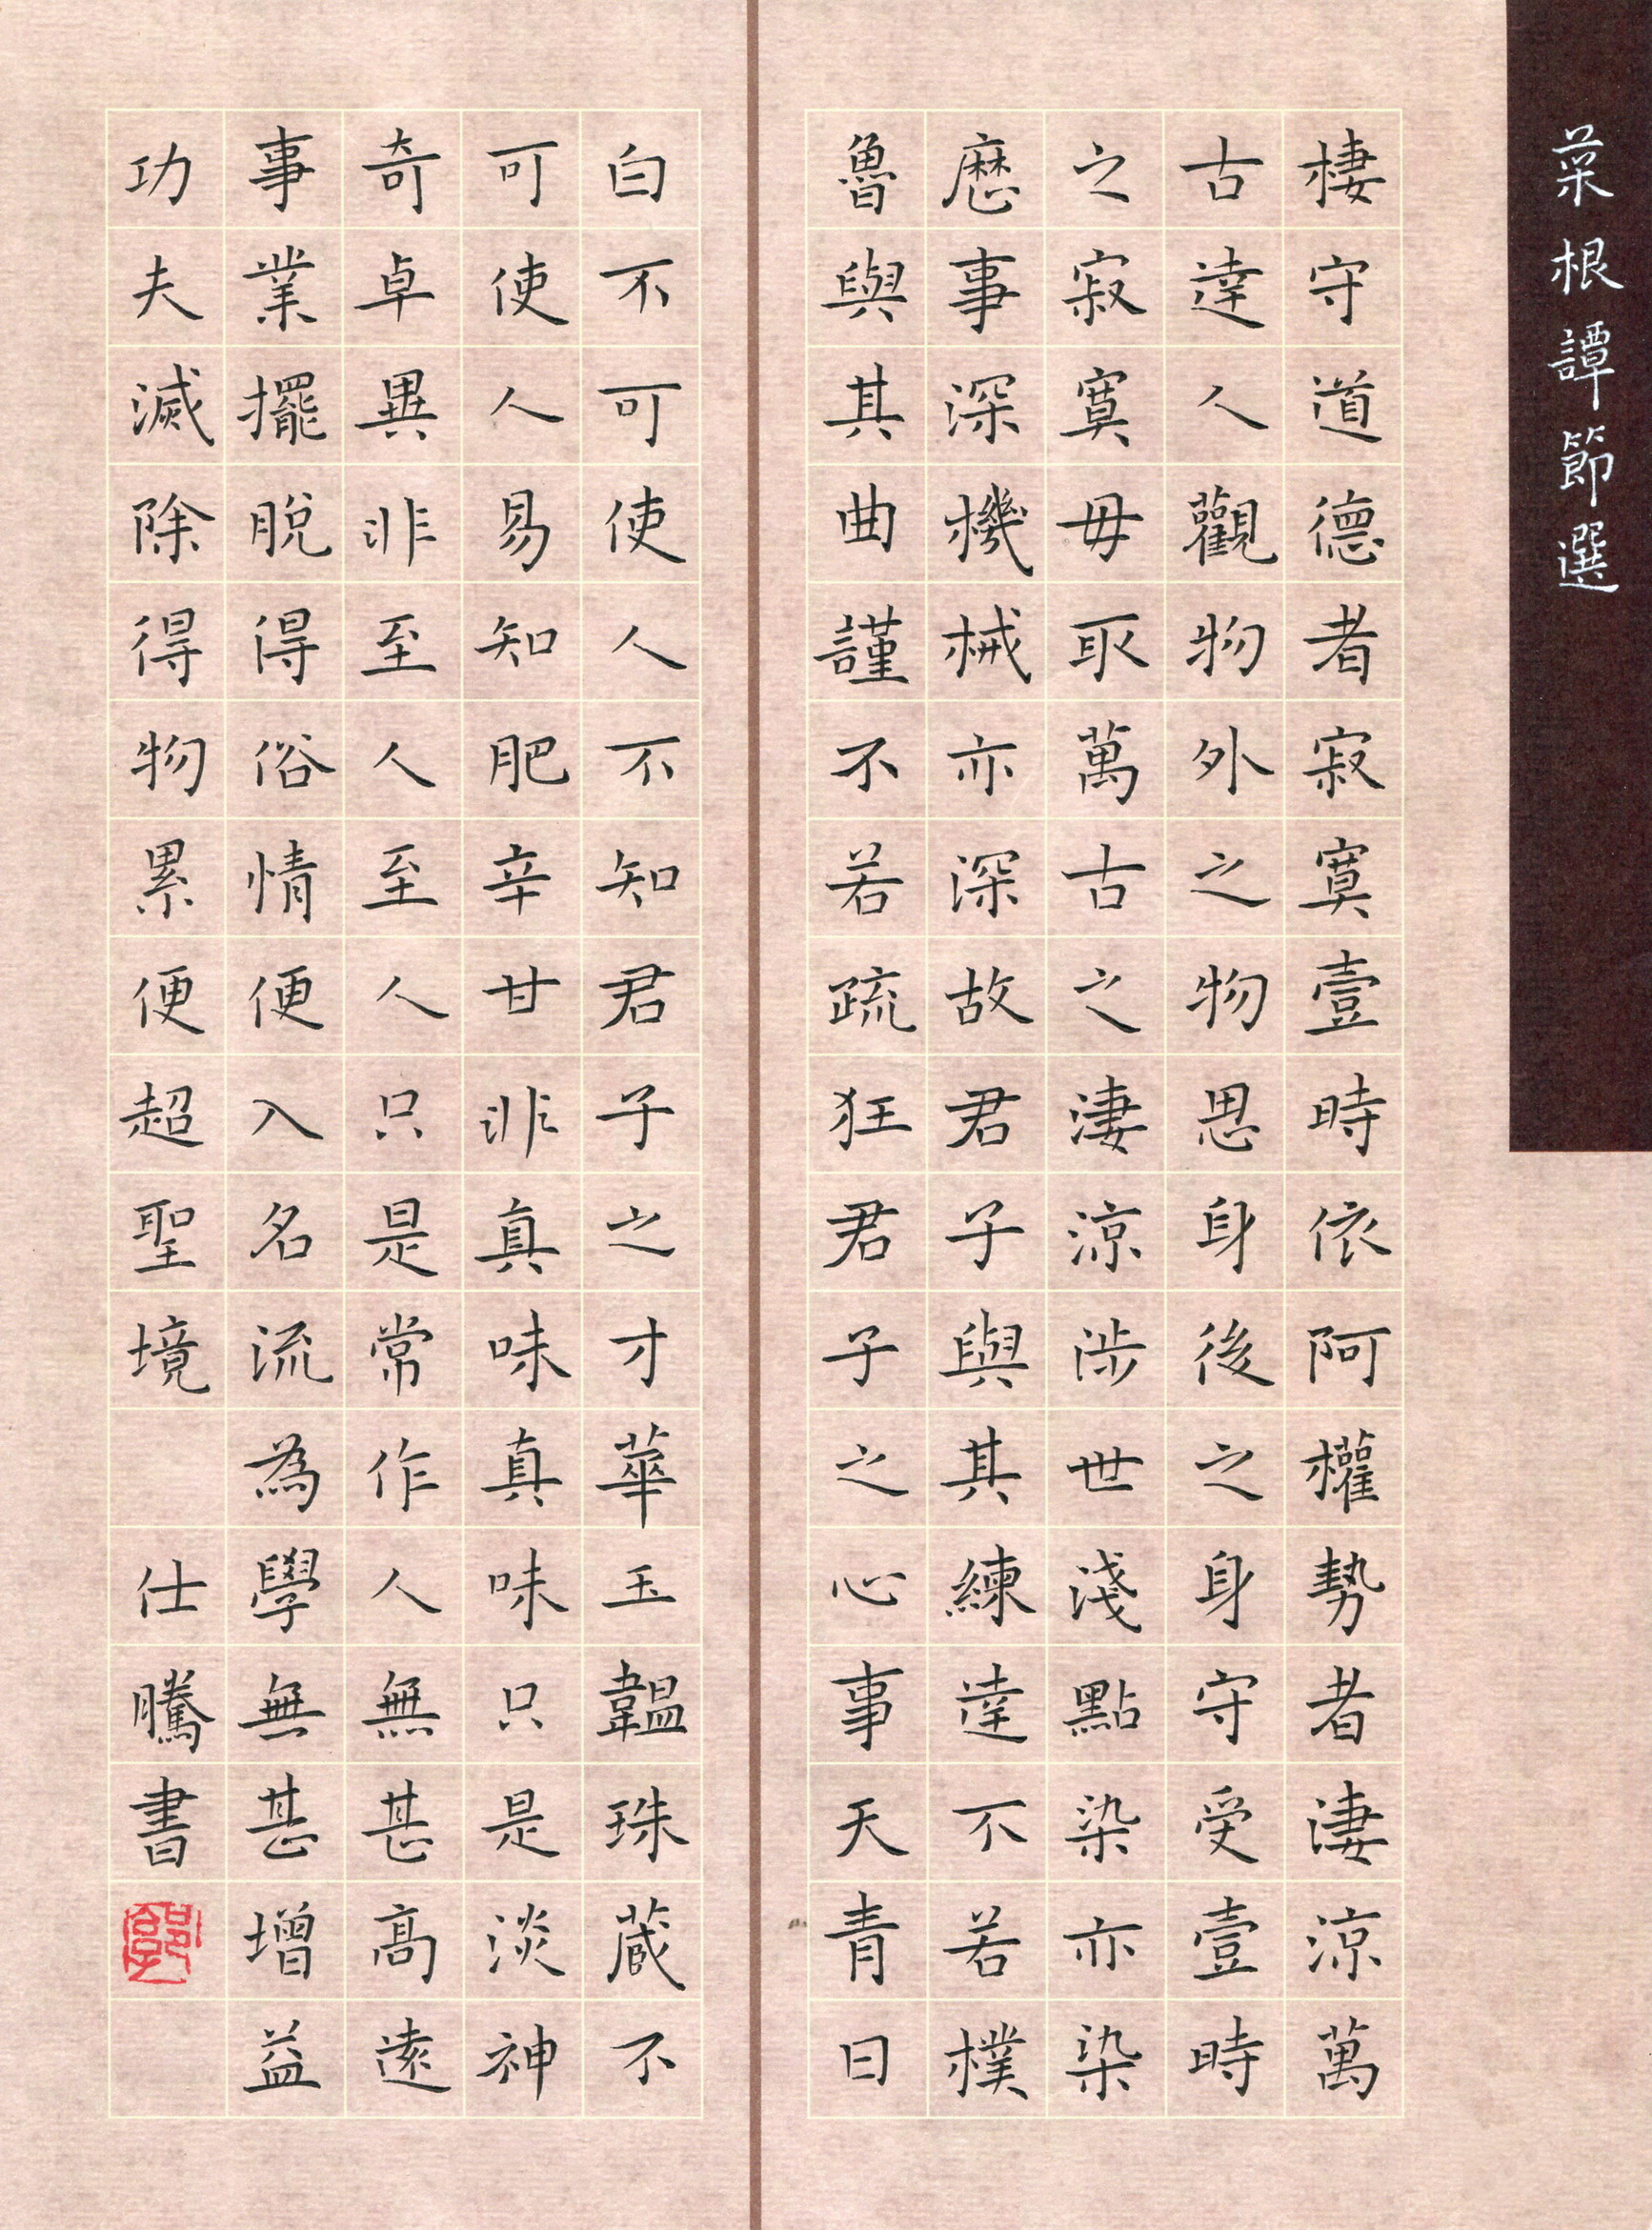 菜根譚節選
棲守道德者寂寞壹時依阿權勢者淒涼萬
古達人觀物外之物思身後之身守受壹時
之寂寞毋取萬古之淒涼涉世淺點染亦染
歷事深機械亦深故君子與其練達不若樸
魯與其曲謹不若疏狂君子之心事天青日
白不可使人不知君子之才華玉韞珠藏不
可使人易知肥辛甘非真味真味只是淡神
奇卓異非至人至人只是常作人無甚高遠
事業擺脫得俗情便入名流為學無甚增益
功夫滅除得物累便超聖境 仕騰書